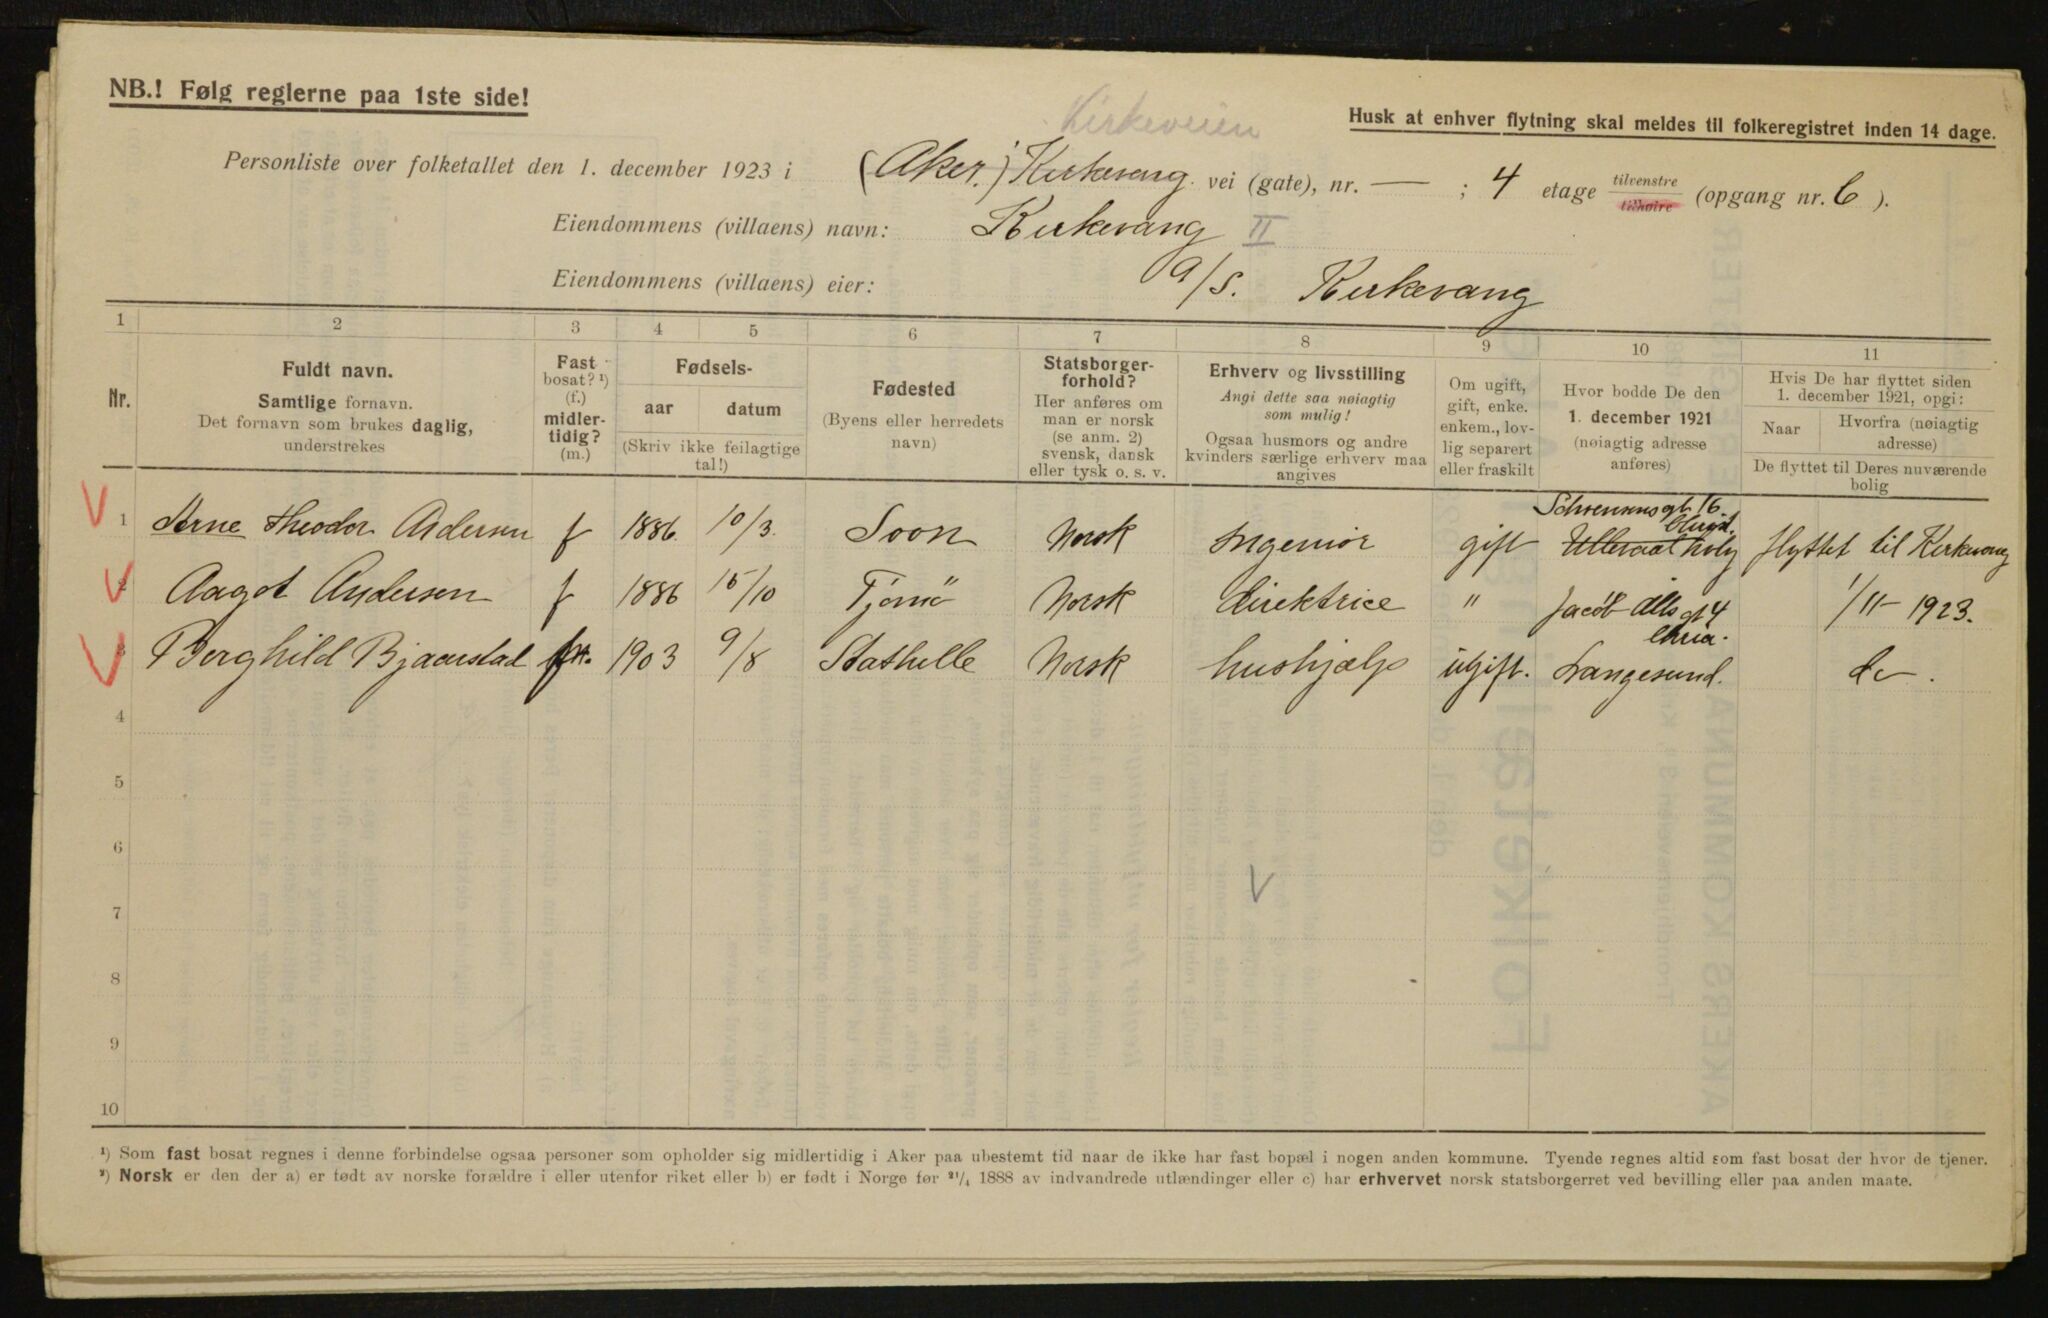 NB.! Følg reglerne paa 1ste side!
Kirkeveien
Husk at enhver flytning skal meldes til folkeregistret inden 14 dage.
Personliste over folketallet den 1. december 1923 i (Aker.) Kirkevang vei (gate), nr. — ; 4 etage tilvenstre / tilhøire (opgang nr. C ).
Eiendommens (villaens) navn: Kirkevang II
Eiendommens (villaens) eier: A/S. Kirkevang
1 2 3 4 5 6 7 8 9 10 11
Nr.
Fuldt navn.
Samtlige fornavn.
Det fornavn som brukes daglig,
understrekes
Fast
bosat? ¹)
(f.)
midler-
tidig?
(m.)
Fødsels-
aar datum
(Skriv ikke feilagtige
tal!)
Fødested
(Byens eller herredets
navn)
Statsborger-
forhold?
Her anføres om
man er norsk
(se anm. 2)
svensk, dansk
eller tysk o. s. v.
Erhverv og livsstilling
Angi dette saa nøiagtig
som mulig!
Ogsaa husmors og andre
kvinders særlige erhverv maa
angives
Om ugift,
gift, enke.
enkem., lov-
lig separert
eller fraskilt
Hvor bodde De den
1. december 1921
(nøiagtig adresse
anføres)
Hvis De har flyttet siden
1. december 1921, opgi:
Naar Hvorfra (nøiagtig
adresse)
De flyttet til Deres nuværende
bolig
Chrial.
1 Arne Theodor Andersen f 1886. 10/3. Soon Norsk Ingeniør gift Ullevaal flyttet til Kirkevang
2 Aagot Andersen f 1886 15/10 Tjømø Norsk direktrice " Jacob Alls gt 4 1/11 - 1923.
Chria.
3 Borghild Bjaerstad 1903 9/8 Stathelle Norsk hushjælp ugift. Langesund. do.
4
5
6
7
8
9
10
¹) Som fast bosat regnes i denne forbindelse ogsaa personer som opholder sig midlertidig i Aker paa ubestemt tid naar de ikke har fast bopæl i nogen anden kommune. Tyende regnes altid som fast bosat der hvor de tjener.
²) Norsk er den der a) er født av norske forældre i eller utenfor riket eller b) er født i Norge før 21/4 1888 av indvandrede utlændinger eller c) har erhvervet norsk statsborgerret ved bevilling eller paa anden maate.